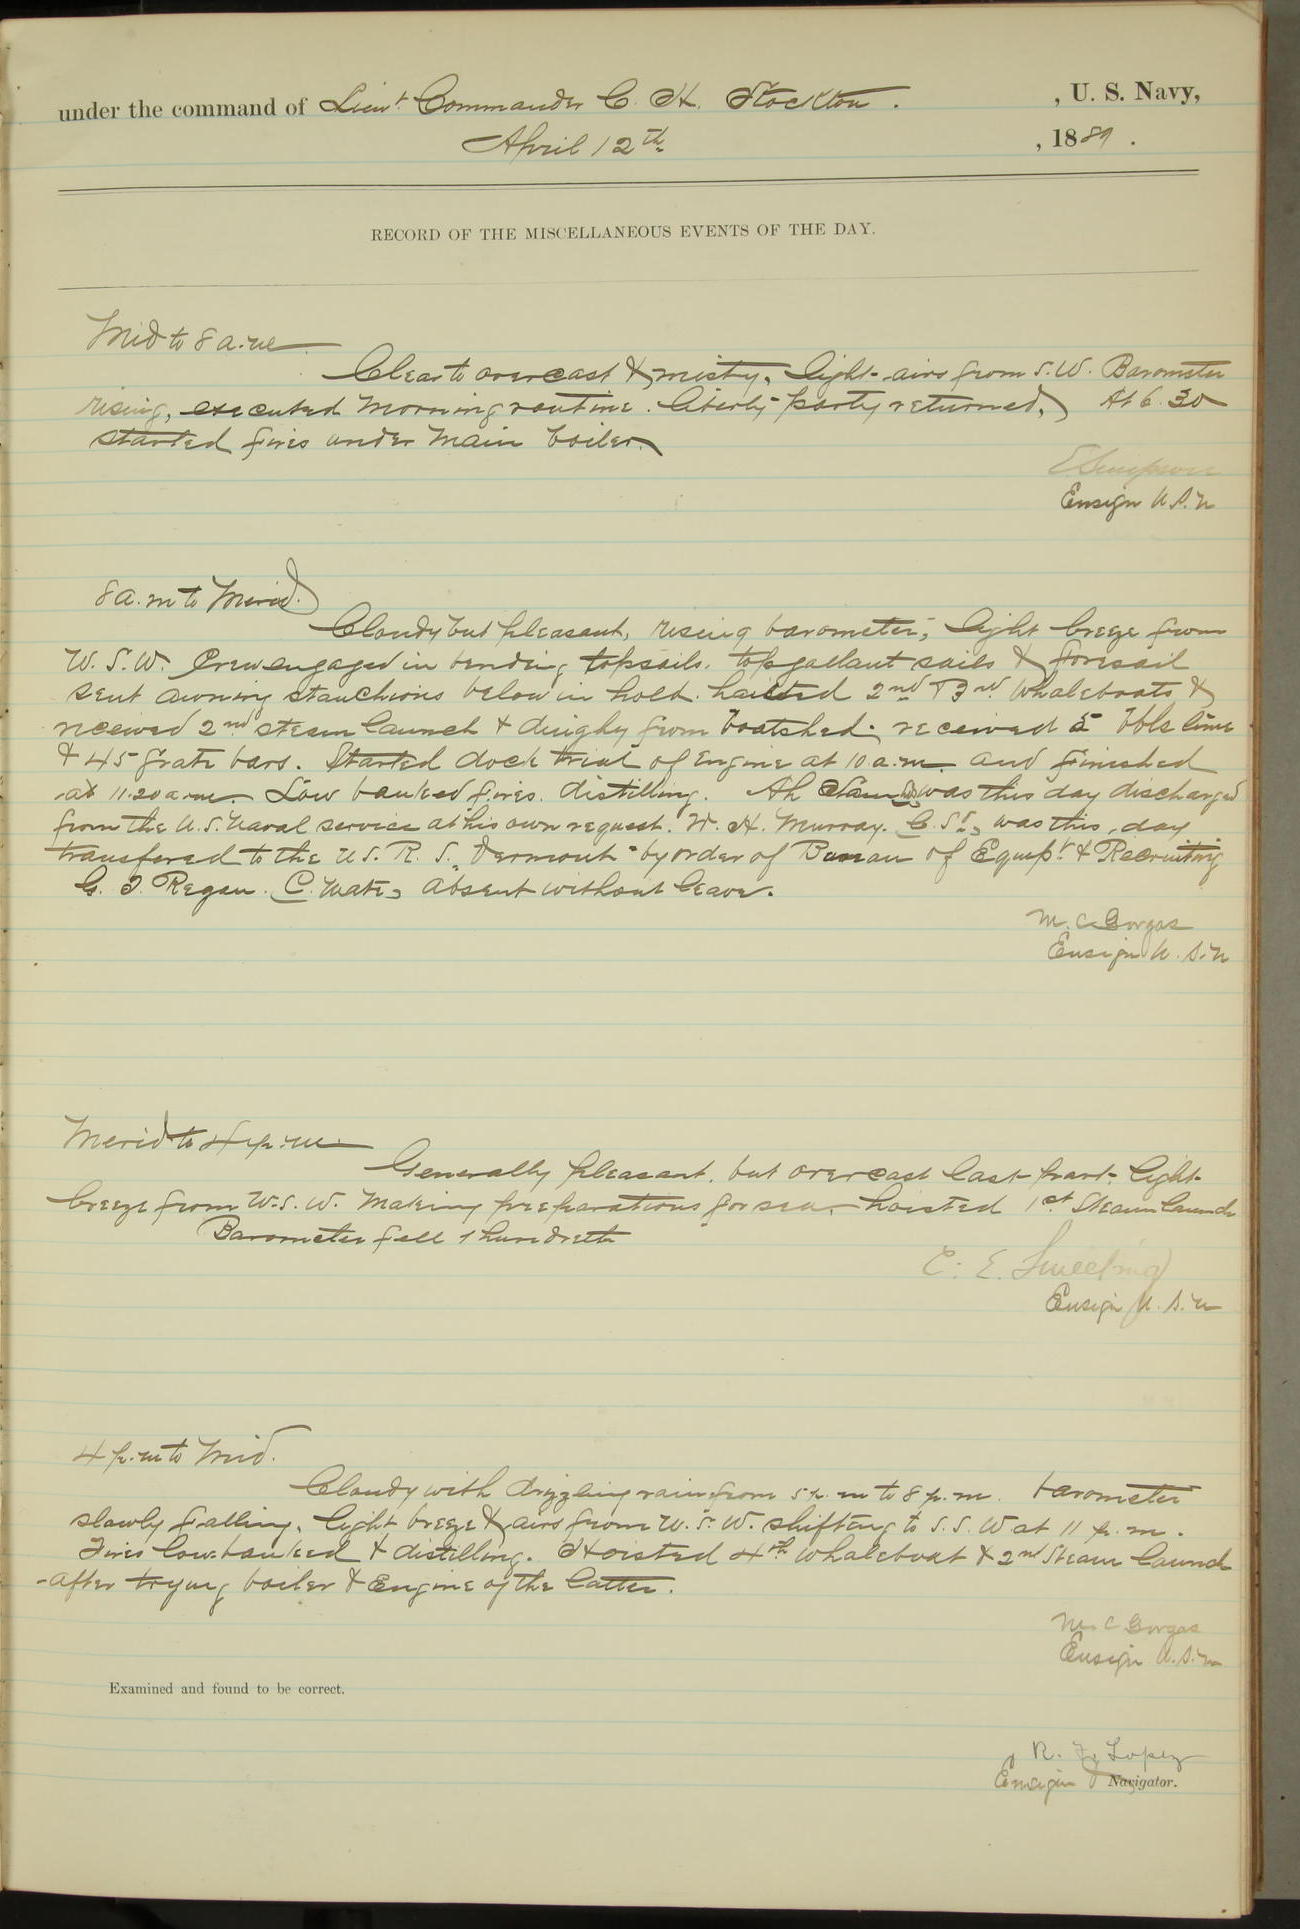 under the command of Lieut Commander C. H. Stockton. , U. S. Navy,
April 12th , 1889.
RECORD OF THE MISCELLANEOUS EVENTS OF THE DAY.
Mid to 8 a.m
Clear to overcast & misty, light airs from S.W. Barometer
rising, executed morning routine. Liberty party returned, At 6.30
started fires under main boiler.
E Simpson
Ensign U.S.N
8 a.m to Merid.
Cloudy but pleasant, rising barometer, light breeze from
W.S.W. Crew engaged in bending topsails, topgallant sails & foresail
sent awning stanchions below in hold. hoisted 2nd & 3rd Whaleboats &
received 2nd steam launch & dinghy from boatshed. received 5 bbls lime
& 45 grate bars. Started dock trial of engine at 10 a.m. and finished
at 11.20 a.m. Low banked fires. distilling. Ah was this day discharged
from the U.S. Naval service at his own request. W. H. Murray. was this day
transfered to the U.S. R. S. "Vermont" by order of Bureau of Equipt & Recruiting
G. J. Regan. C. Mate, absent without leave.
M. C Gorgas
Ensign U.S.N
Merid to 4 p.m
Generally pleasant, but overcast last part, light
breeze from W.S.W. Making preparations for sea, hoisted 1st Steam launch
Barometer fell 1 hundreth
E. E.
Ensign U.S.N
4 p.m to Mid.
Cloudy with drizzling rain from 5 p.m to 8 p.m. barometer
slowly falling, light breeze & airs from W.S.W. shifting to S.S.W at 11 p.m.
Fires low banked & distilling. Hoisted 4th whaleboat & 2nd Steam launch
after trying boiler & Engine of the latter.
M. C Gorgas
Ensign U.S.N
Examined and found to be correct.
R. F. Lopez
Ensign & Navigator.